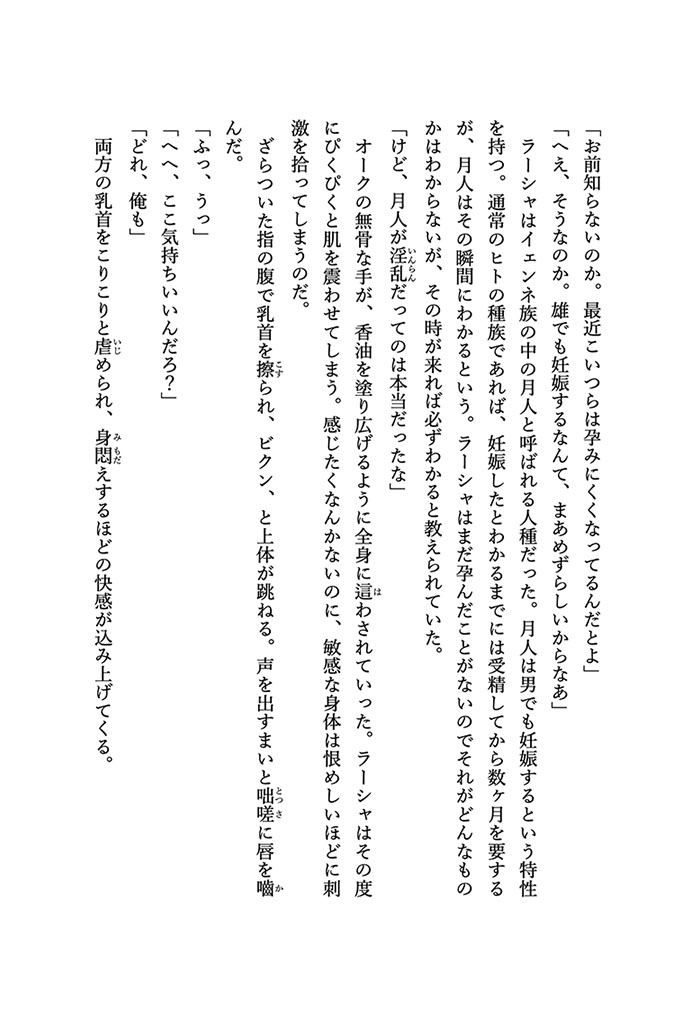 「お前知らないのか。最近こいつらは孕みにくくなってるんだとよ」
「へえ、そうなのか。雄でも妊娠するなんて、まあめずらしいからなあ」
　ラーシャはイェンネ族の中の月人と呼ばれる人種だった。月人は男でも妊娠するという特性
を持つ。通常のヒトの種族であれば、妊娠したとわかるまでには受精してから数ヶ月を要する
が、月人はその瞬間にわかるという。ラーシャはまだ孕んだことがないのでそれがどんなもの
かはわからないが、その時が来れば必ずわかると教えられていた。
「けど、月人が淫乱だってのは本当だったな」
　オークの無骨な手が、香油を塗り広げるように全身に這わされていった。ラーシャはその度
にぴくぴくと肌を震わせてしまう。感じたくなんかないのに、敏感な身体は恨めしいほどに刺
激を拾ってしまうのだ。
　ざらついた指の腹で乳首を擦られ、ビクン、と上体が跳ねる。声を出すまいと咄嗟に唇を嚙
んだ。
「ふっ、うっ」
「へへ、ここ気持ちいいんだろ？」
「どれ、俺も」
　両方の乳首をこりこりと虐められ、身悶えするほどの快感が込み上げてくる。